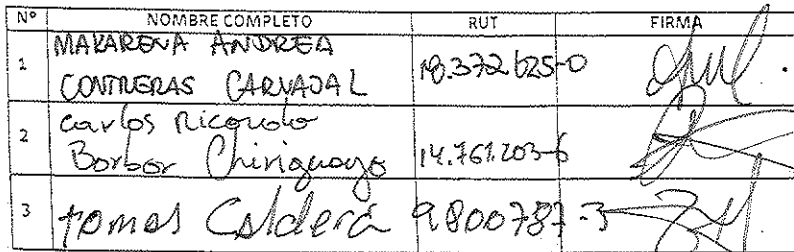 Nº NOMBRE COMPLETO RUT FIRMA
1 MAKARENA ANDREA
CONTRERAS CARVAJAL 18.372.625-0
2 Carlos Ricardo
Borbor Chiriguayo 14.761.203-6
3 tomas Caldera 9.800787-3